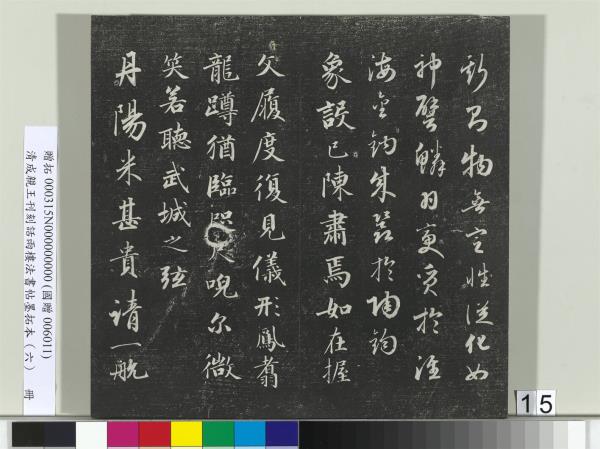 物無定性從化如
神譬鱗羽變質於淮
海金錫成器於陶鈞
象設已陳肅焉如在握
文履度復見儀形鳳翥
龍蹲猶臨咫尺唲尔微
笑若聽武城之弦
丹陽米甚貴請一航
贈拓 000315N000000000 (國贈 006011)
清成親王刊刻話雨樓法書帖墨拓本（六） 冊
15